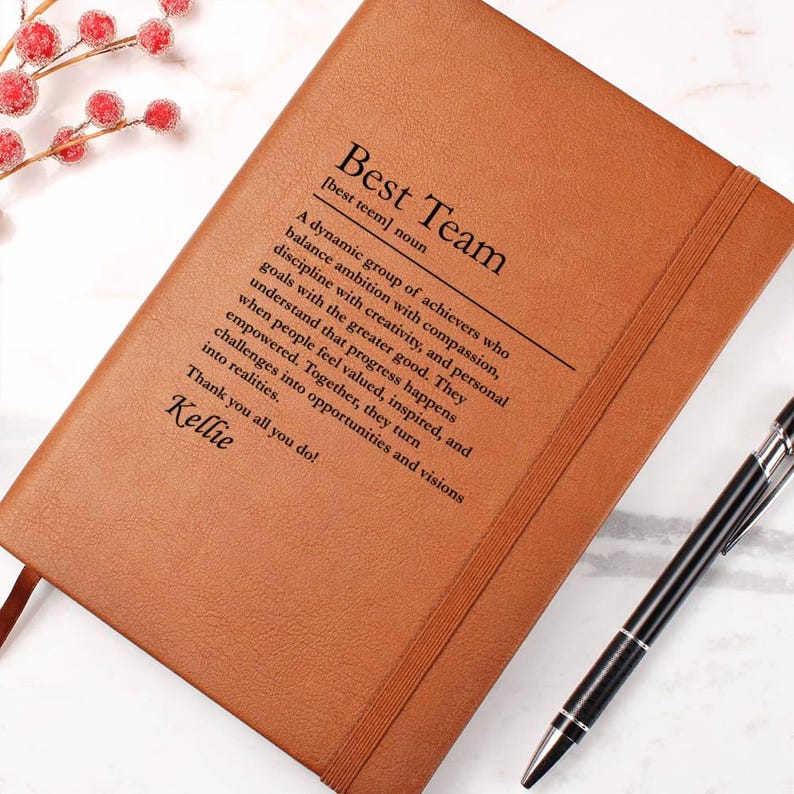 Best Team
[best teem] noun
A dynamic group of achievers who
balance ambition with compassion,
discipline with creativity, and personal
goals with the greater good. They
understand that progress happens
when people feel valued, inspired, and
empowered. Together, they turn
challenges into opportunities and visions
into realities.
Thank you all you do!
Kellie